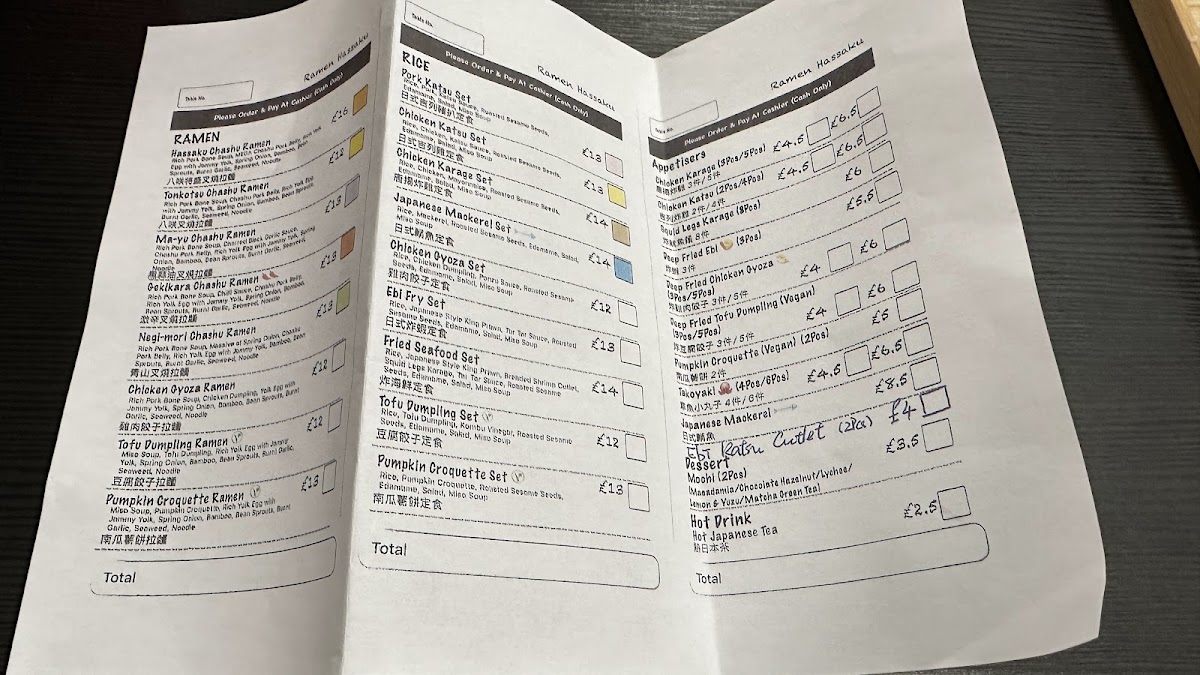 Ramen Hassaku
Table No.
Please Order & Pay At Cashier (Cash Only)
RAMEN
Hassaku Chashu Ramen £16
Rich Pork Bone Soup, MEGA Chashu Pork Belly, Rich Yolk
Egg with Jammy Yolk, Spring Onion, Bamboo, Bean
Sprouts, Burnt Garlic, Seaweed, Noodle
八咲特盛叉燒拉麵
Tonkotsu Chashu Ramen £12
Rich Pork Bone Soup, Chashu Pork Belly, Rich Yolk Egg
with Jammy Yolk, Spring Onion, Bamboo, Bean Sprouts,
Burnt Garlic, Seaweed, Noodle
八咲叉燒拉麵
Ma-yu Chashu Ramen £13
Rich Pork Bone Soup, Charred Black Garlic Sauce,
Chashu Pork Belly, Rich Yolk Egg with Jammy Yolk, Spring
Onion, Bamboo, Bean Sprouts, Burnt Garlic, Seaweed,
Noodle
黑蒜油叉燒拉麵
Gekikara Chashu Ramen £13
Rich Pork Bone Soup, Chilli Sauce, Chashu Pork Belly,
Rich Yolk Egg with Jammy Yolk, Spring Onion, Bamboo,
Bean Sprouts, Burnt Garlic, Seaweed, Noodle
激辛叉燒拉麵
Negi-mori Chashu Ramen £13
Rich Pork Bone Soup, Massive of Spring Onion, Chashu
Pork Belly, Rich Yolk Egg with Jammy Yolk, Bamboo, Bean
Sprouts, Burnt Garlic, Seaweed, Noodle
青山叉燒拉麵
Chicken Gyoza Ramen £12
Rich Pork Bone Soup, Chicken Dumpling, Yolk Egg with
Jammy Yolk, Spring Onion, Bamboo, Bean Sprouts, Burnt
Garlic, Seaweed, Noodle
雞肉餃子拉麵
Tofu Dumpling Ramen £12
Miso Soup, Tofu Dumpling, Rich Yolk Egg with Jammy
Yolk, Spring Onion, Bamboo, Bean Sprouts, Burnt Garlic,
Seaweed, Noodle
豆腐餃子拉麵
Pumpkin Croquette Ramen £13
Miso Soup, Pumpkin Croquette, Rich Yolk Egg with
Jammy Yolk, Spring Onion, Bamboo, Bean Sprouts, Burnt
Garlic, Seaweed, Noodle
南瓜薯餅拉麵
Total
Table No.
Ramen Hassaku
Please Order & Pay At Cashier (Cash Only)
RICE
Pork Katsu Set £13
Rice, Pork, Katsu Sauce, Roasted Sesame Seeds,
Edamame, Salad, Miso Soup
日式吉列豬扒定食
Chicken Katsu Set £13
Rice, Chicken, Katsu Sauce, Roasted Sesame Seeds,
Edamame, Salad, Miso Soup
日式吉列雞定食
Chicken Karage Set £14
Rice, Chicken, Mayonnaise, Roasted Sesame Seeds,
Edamame, Salad, Miso Soup
唐揚炸雞定食
Japanese Mackerel Set £14
Rice, Mackerel, Roasted Sesame Seeds, Edamame, Salad,
Miso Soup
日式鯖魚定食
Chicken Gyoza Set £12
Rice, Chicken Dumpling, Ponzu Sauce, Roasted Sesame
Seeds, Edamame, Salad, Miso Soup
雞肉餃子定食
Ebi Fry Set £13
Rice, Japanese Style King Prawn, Tar Tar Sauce, Roasted
Sesame Seeds, Edamame, Salad, Miso Soup
日式炸蝦定食
Fried Seafood Set £14
Rice, Japanese Style King Prawn, Breaded Shrimp Cutlet,
Squid Legs Karage, Tar Tar Sauce, Roasted Sesame
Seeds, Edamame, Salad, Miso Soup
炸海鮮定食
Tofu Dumpling Set £12
Rice, Tofu Dumpling, Kombu Vinegar, Roasted Sesame
Seeds, Edamame, Salad, Miso Soup
豆腐餃子定食
Pumpkin Croquette Set £13
Rice, Pumpkin Croquette, Roasted Sesame Seeds,
Edamame, Salad, Miso Soup
南瓜薯餅定食
Total
Ramen Hassaku
Table No.
Please Order & Pay At Cashier (Cash Only)
Appetisers
Chicken Karage (3Pcs/5Pcs) £4.5 £6.5
唐揚炸雞 3件/5件
Chicken Katsu (2Pcs/4Pcs) £4.5 £6.5
吉列炸雞 2件/4件
Squid Legs Karage (8Pcs) £6
炸魷魚鬚 8件
Deep Fried Ebi (3Pcs) £5.5
炸蝦 3件
Deep Fried Chicken Gyoza
(3Pcs/5Pcs) £4 £6
炸雞肉餃子 3件/5件
Deep Fried Tofu Dumpling (Vegan)
(3Pcs/5Pcs) £4 £6
炸豆腐餃子 3件/5件
Pumpkin Croquette (Vegan) (2Pcs) £5
南瓜薯餅 2件
Takoyaki (4Pcs/6Pcs) £4.5 £6.5
章魚小丸子 4件/6件
Japanese Mackerel £8.5
日式鯖魚
EBI Katsu Cutlet (2Pcs) £4
Dessert
Mochi (2Pcs) £3.5
(Macadamia/Chocolate Hazelnut/Lychee/
Lemon & Yuzu/Matcha Green Tea)
Hot Drink
Hot Japanese Tea £2.5
熱日本茶
Total